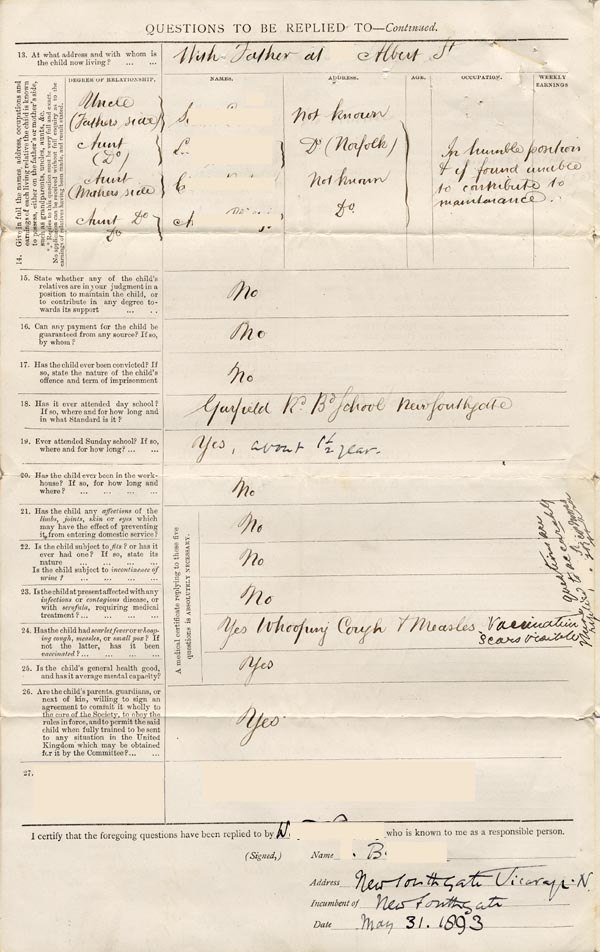 QUESTIONS TO BE REPLIED TO—Continued.
13. At what address and with whom is
the child now living? ... ...
With Father at Albert St
14. Give in full the names, address, occupations and
earnings of each living relative the child is known
to possess, either on the father's or mother's side,
such as grandparents, uncles, aunts, &c.
DEGREE OF RELATIONSHIP.
NAMES.
ADDRESS.
AGE.
OCCUPATION.
WEEKLY
EARNINGS
Uncle
(Fathers side)
S.
Not known
Aunt
(Do)
L.
Do (Norfolk)
Aunt
(Mothers side)
C
Not known
Aunt Do
Do
A
Do.
In humble position
& if found unable
to contribute to
maintainance.
15. State whether any of the child's
relatives are in your judgment in a
position to maintain the child, or
to contribute in any degree to-
wards its support ... ...
No
16. Can any payment for the child be
guaranteed from any source? If so,
by whom?
No
17. Has the child ever been convicted? If
so, state the nature of the child's
offence and term of imprisonment
No
18. Has it ever attended day school?
If so, where and for how long and
in what Standard is it?
Garfield Rd Bd School New Southgate
19. Ever attended Sunday school? If so,
where and for how long? ... ...
Yes, about 1½ year.
20. Has the child ever been in the work-
house? If so, for how long and
where? ... ... ... ...
No
A medical certificate replying to these five
questions is ABSOLUTELY NECESSARY.
21. Has the child any affections of the
limbs, joints, skin or eyes which
may have the effect of preventing
it from entering domestic service?
No
22. Is the child subject to fits? or has it
ever had one? If so, state its
nature ... ... ... ...
Is the child subject to incontinence of
urine? ... ... ... ...
No
23. Is the child at present affected with any
infectious or contagious disease, or
with scrofula, requiring medical
treatment? ... ... ... ...
No
24. Has the child had scarlet fever or whoop-
ing cough, measles, or small pox? If
not the latter, has it been
vaccinated? ... ... ... ...
Yes Whooping Cough & Measles Vaccination
scars visible
25. Is the child's general health good,
and has it average mental capacity?
Yes
26. Are the child's parents, guardians, or
next of kin, willing to sign an
agreement to commit it wholly to
the care of the Society, to obey the
rules in force, and to permit the said
child when fully trained to be sent
to any situation in the United
Kingdom which may be obtained
for it by the Committee? ... ...
Yes
27.
I certify that the foregoing questions have been replied to by W. who is known to me as a responsible person.
(Signed,) Name B.
Address New Southgate Vicarage. N.
Incumbent of New Southgate
Date May 31. 1893